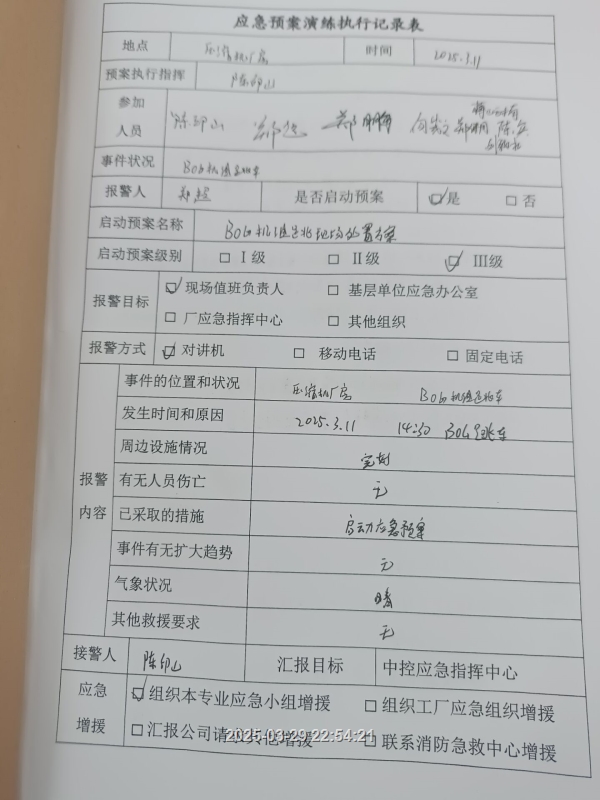 应急预案演练执行记录表
地点 压缩机厂房 时间 2025.3.11
预案执行指挥 陈印山
参加人员 陈印山 郑超 郑鹏
事件状况
报警人 郑超 是否启动预案 ☑是 □否
启动预案名称
启动预案级别 □Ⅰ级 □Ⅱ级 ☑Ⅲ级
报警目标 ☑现场值班负责人 □基层单位应急办公室
□厂应急指挥中心 □其他组织
报警方式 ☑对讲机 □移动电话 □固定电话
报警内容
事件的位置和状况 压缩机厂房
发生时间和原因 2025.3.11 14:30 BOG 跳车
周边设施情况 完好
有无人员伤亡 无
已采取的措施 启动应急预案
事件有无扩大趋势 无
气象状况 晴
其他救援要求 无
接警人 陈印山 汇报目标 中控应急指挥中心
应急增援 ☑组织本专业应急小组增援 □组织工厂应急组织增援
□汇报公司请求其他增援 □联系消防急救中心增援
2025-03-29 22:54:21